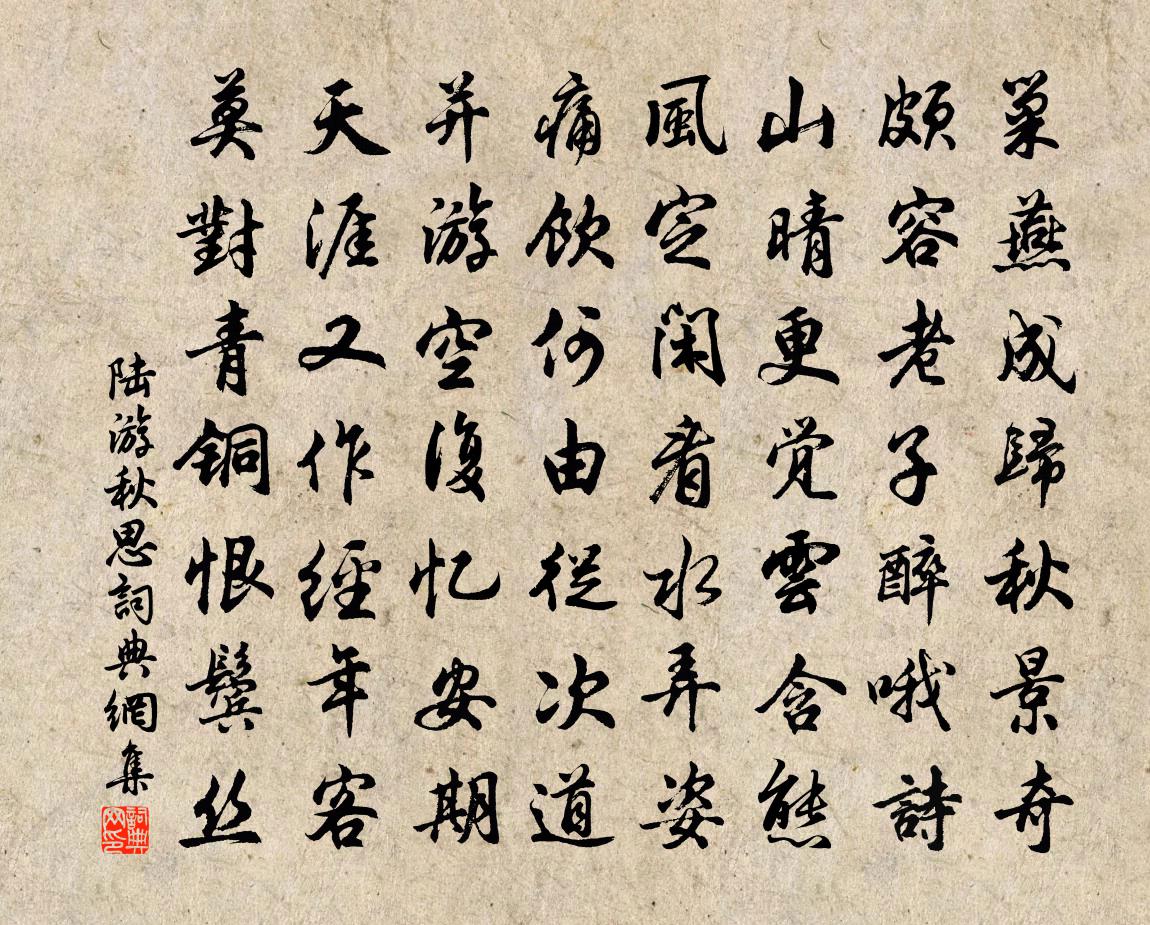 巢燕成歸秋景奇
頗容老子醉哦詩
山晴更觉雲含態
風定閑看水弄姿
痛飲何由從次道
并游空復忆安期
天涯又作經年客
莫對青銅恨鬓丝
陆游秋思詞典網集
詞典网印